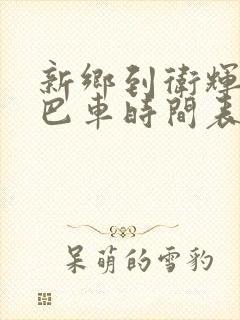 新鄉到衛輝
巴車時間表
呆萌的雪豹